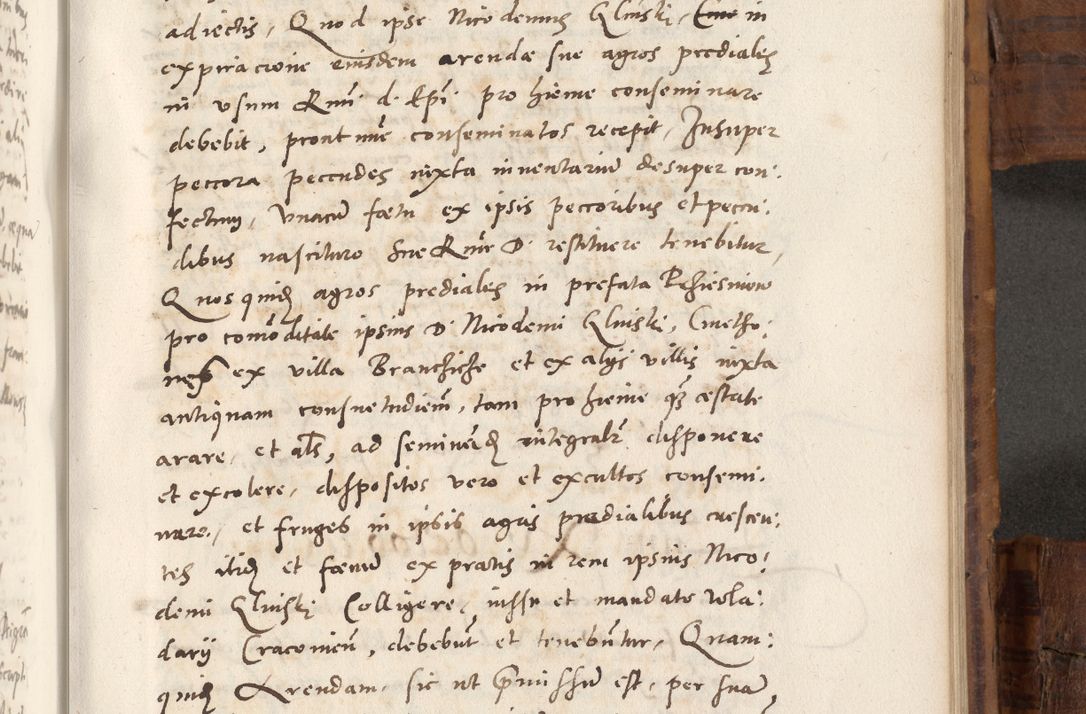 adiectis, Quod ipse Nicodemus Gliński, in
expiracione eiusdem arendæ sue agros prediales
in usum Rmi d. Epi pro hieme conseminare
debebit, prout nuc conseminatos recepit, Insuper
peccora peccudes iuxta inventariu desuper con:
fectum, unacu fœtu ex ipsis peccoribus et peccu:
dibus nascituro Sue Rme D. restituere tenebitur,
Quosquid agros prediales in prefata
pro comoditate ipsius D. Nicodemi Gliński, Cmetho:
nes ex villa Branchiche et ex alijs villis iuxta
antiquam consuetudiem, tam pro hieme qz æstate
arare, et als, ad seminad integralr disponere
et excolere, dispositos vero et excultos consemi:
nare, et fruges in ipsis agris prædialibus crescen:
tes itid et fœnu ex pratis in rem ipsius Nico:
demi Gliński Colligere, iussu et mandato Wla:
darij Cracovien, debebut et tenebutur, Quam:
quid Arendam, sic ut pmissu est, per sua,